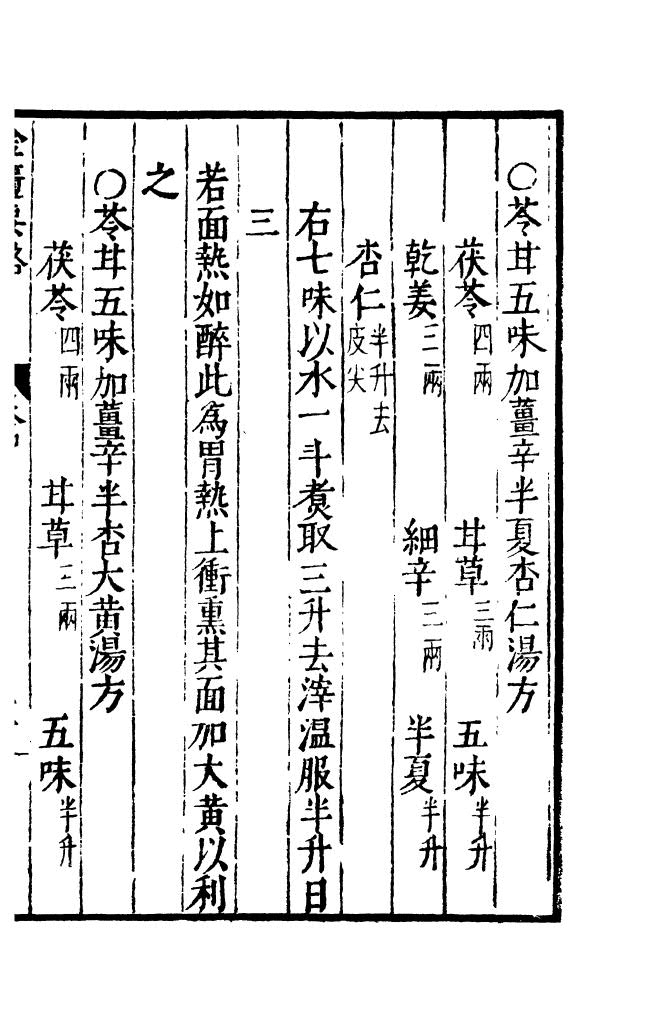 ○苓甘五味加薑辛半夏杏仁湯方
茯苓四兩 甘草三兩 五味半升
乾姜三兩 細辛三兩 半夏半升
杏仁半升去皮尖
右七味以水一斗煑取三升去滓温服半升日
三
若面熱如醉此為胃熱上衝熏其面加大黄以利
之
○苓甘五味加薑辛半杏大黄湯方
茯苓四兩 甘草三兩 五味半升